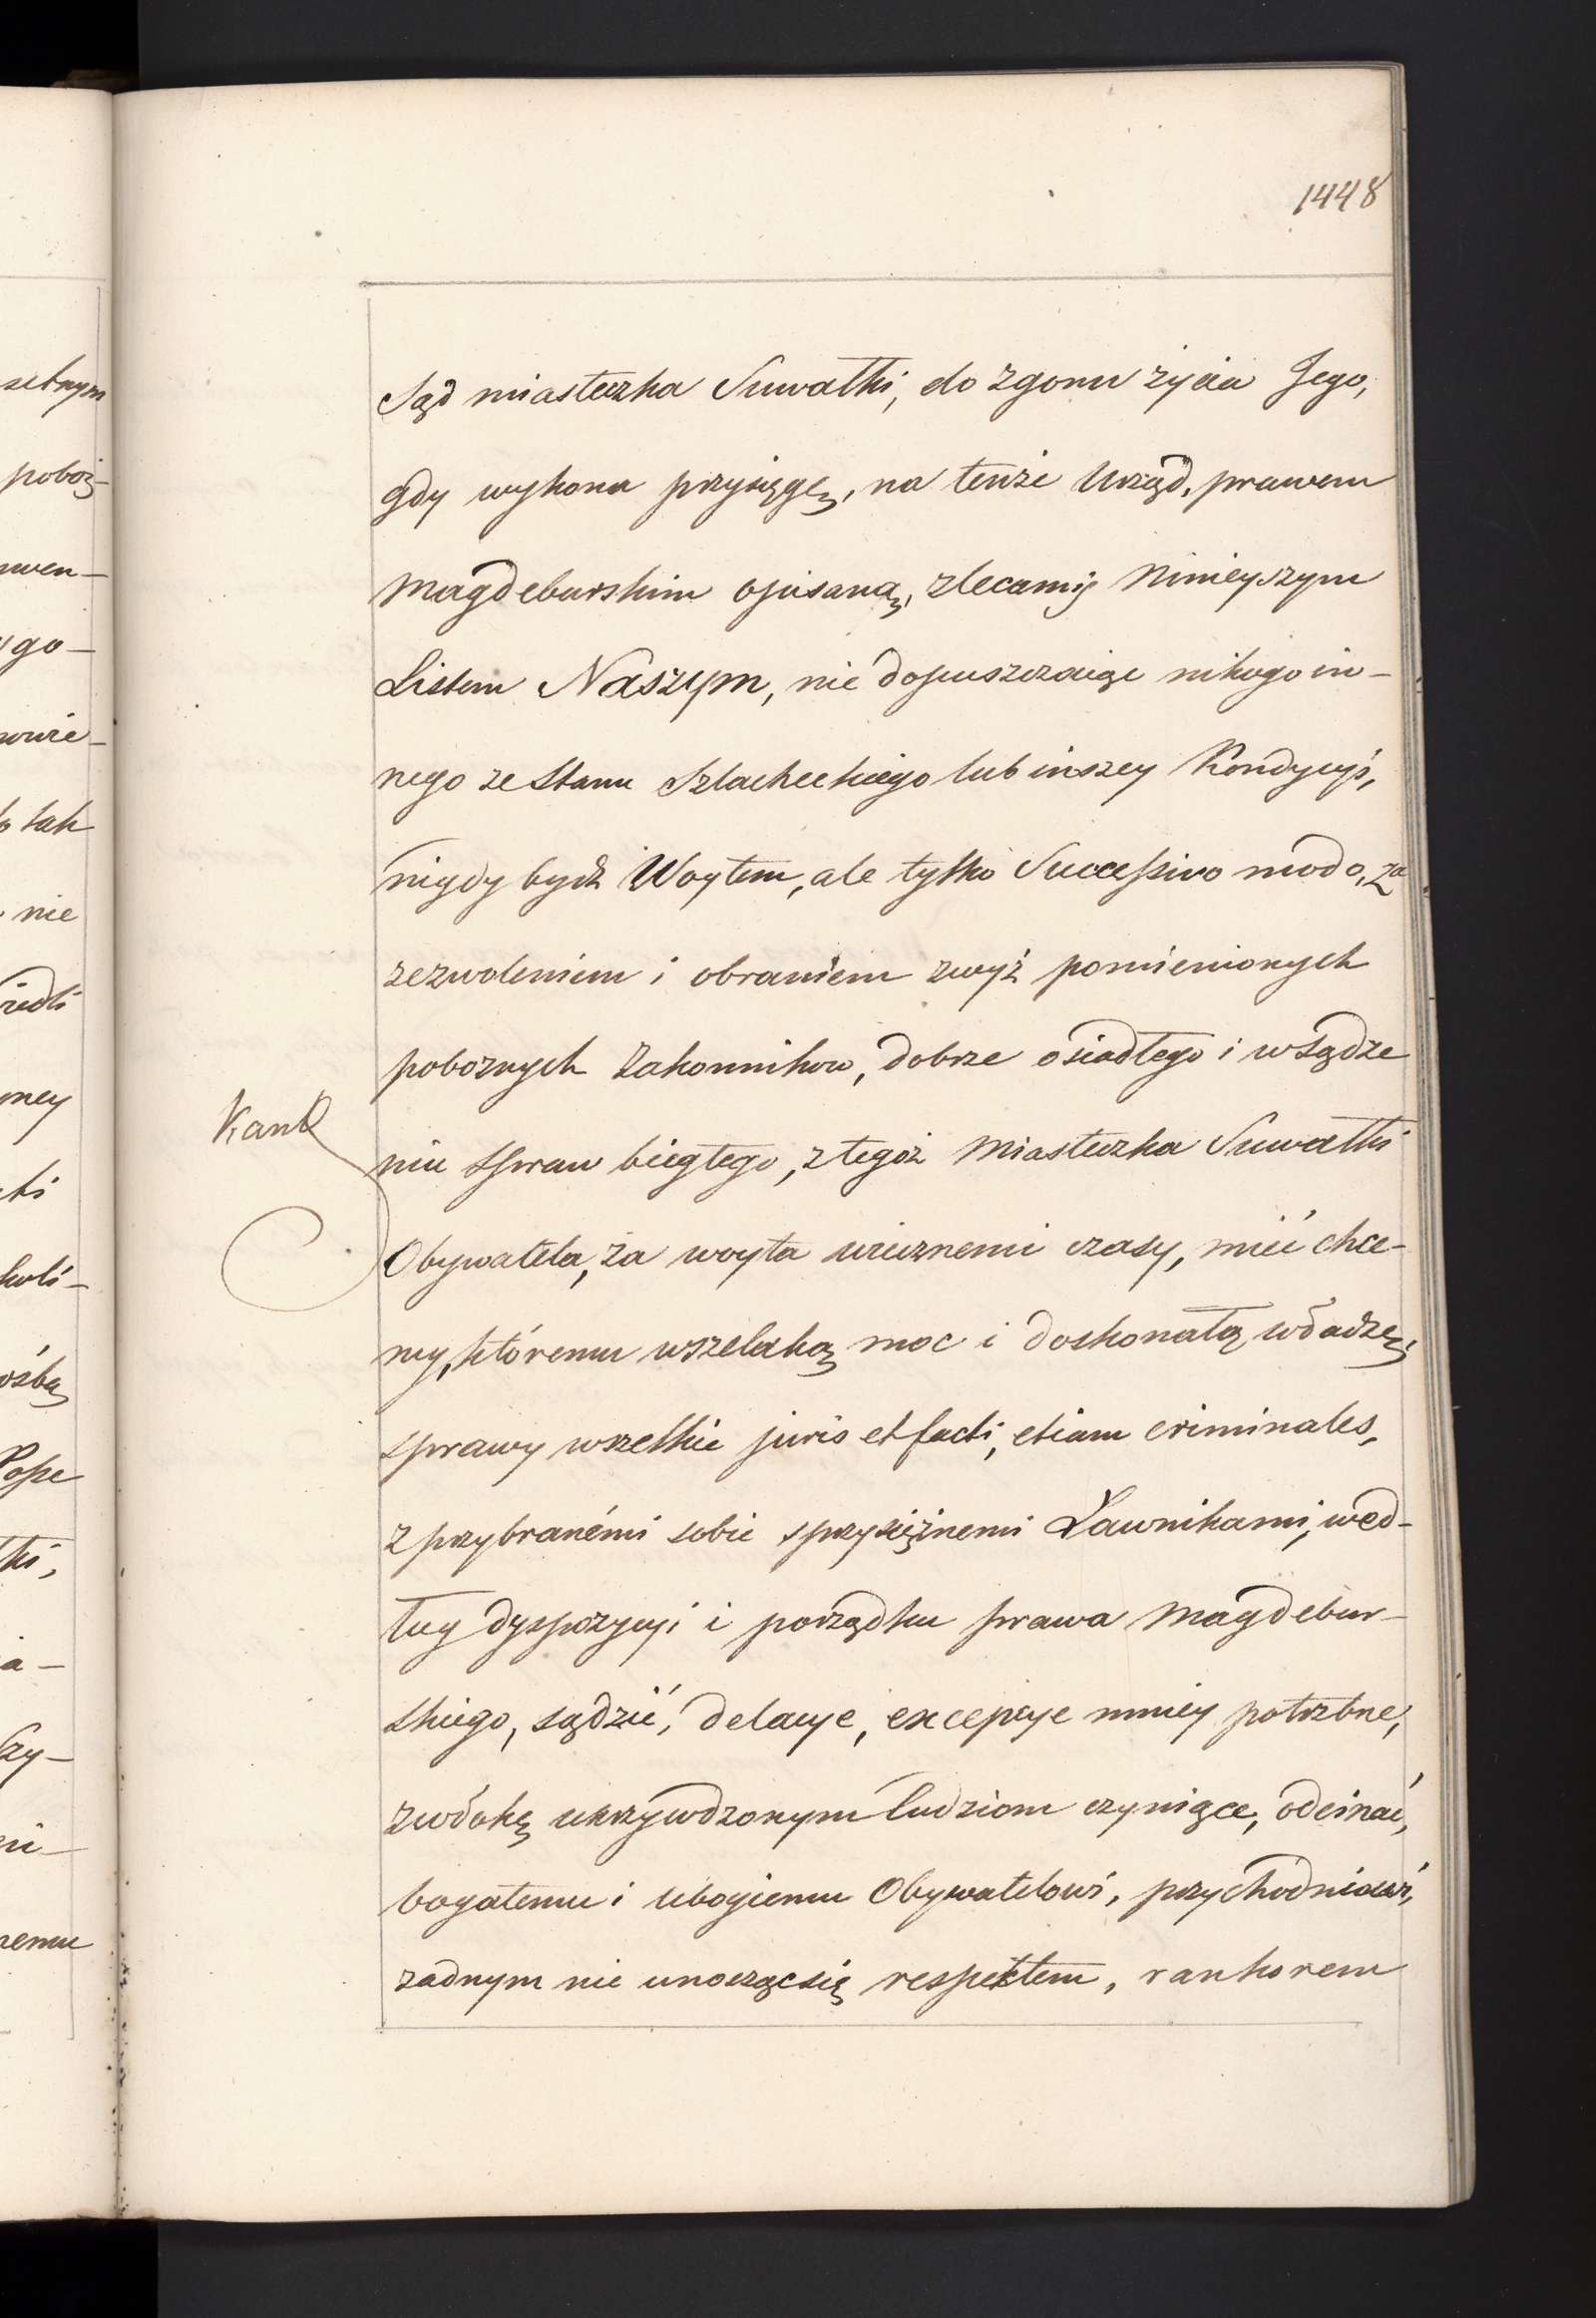 1448
Sąd miasteczka Suwałki, do zgonu życia Jego,
gdy wykona przysięgę, na tenże Urząd, prawem
Magdeburskim opisaną, zlecamy Ninieyszym
Listem Naszym, nie dopuszczaiąc nikogo in-
nego ze Stanu Szlacheckiego lub inszey Kondycyi,
nigdy bydź Woytem, ale tylko Successivo modo, za
zezwoleniem i obraniem zwyż pomienionych
pobożnych Zakonnikow, dobrze osiadłego i w sądze
niu spraw biegłego, z tegoż Miasteczka Suwałki
Obywatela, za woyta wiecznemi czasy, mieć chce-
my, któremu wszelaką moc i doskonałą władzę,
sprawy wszelkie juris et facti, etiam criminales,
z przybranémi sobie sprzysiężnemi Ławnikami, wed-
ług dyspozycyi i porządku prawa Magdebur-
skiego, sądzić, delacye, excepcye mniey potrzbne,
zwłokę ukrzywdzonym ludziom czyniące, odcinać,
bogatemu i ubogiemu Obywatelowi, przychodniowi,
żadnym nie unosząc się respektem, rankorem